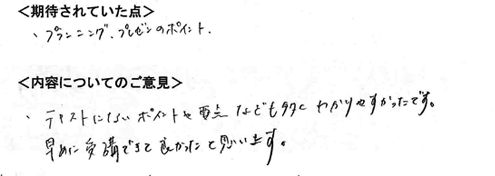 ＜期待されていた点＞
・プランニング、プレゼンのポイント.
＜内容についてのご意見＞
・テキストにないポイントや要点なども多くわかりやすかったです。
早めに受講できて良かったと思います。